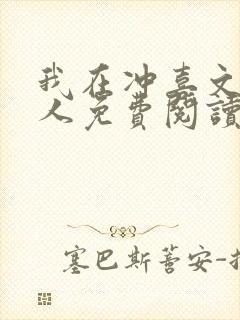 我在冲喜文
人免費閱讀
塞巴斯蒂安-